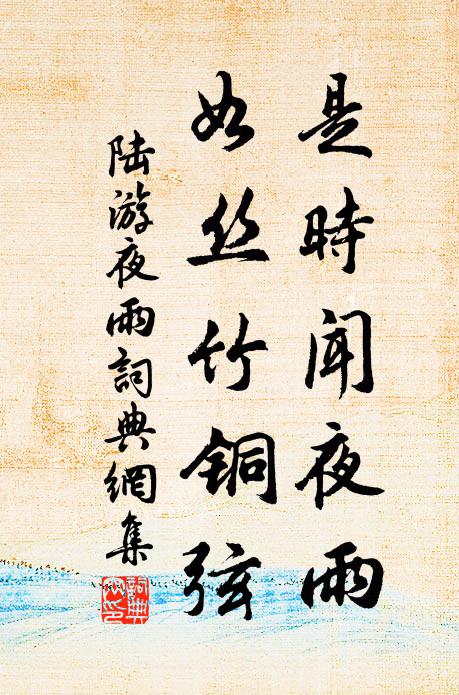 是時闻夜雨
如丝竹铜弦
陆游夜雨詞典網集
詞典